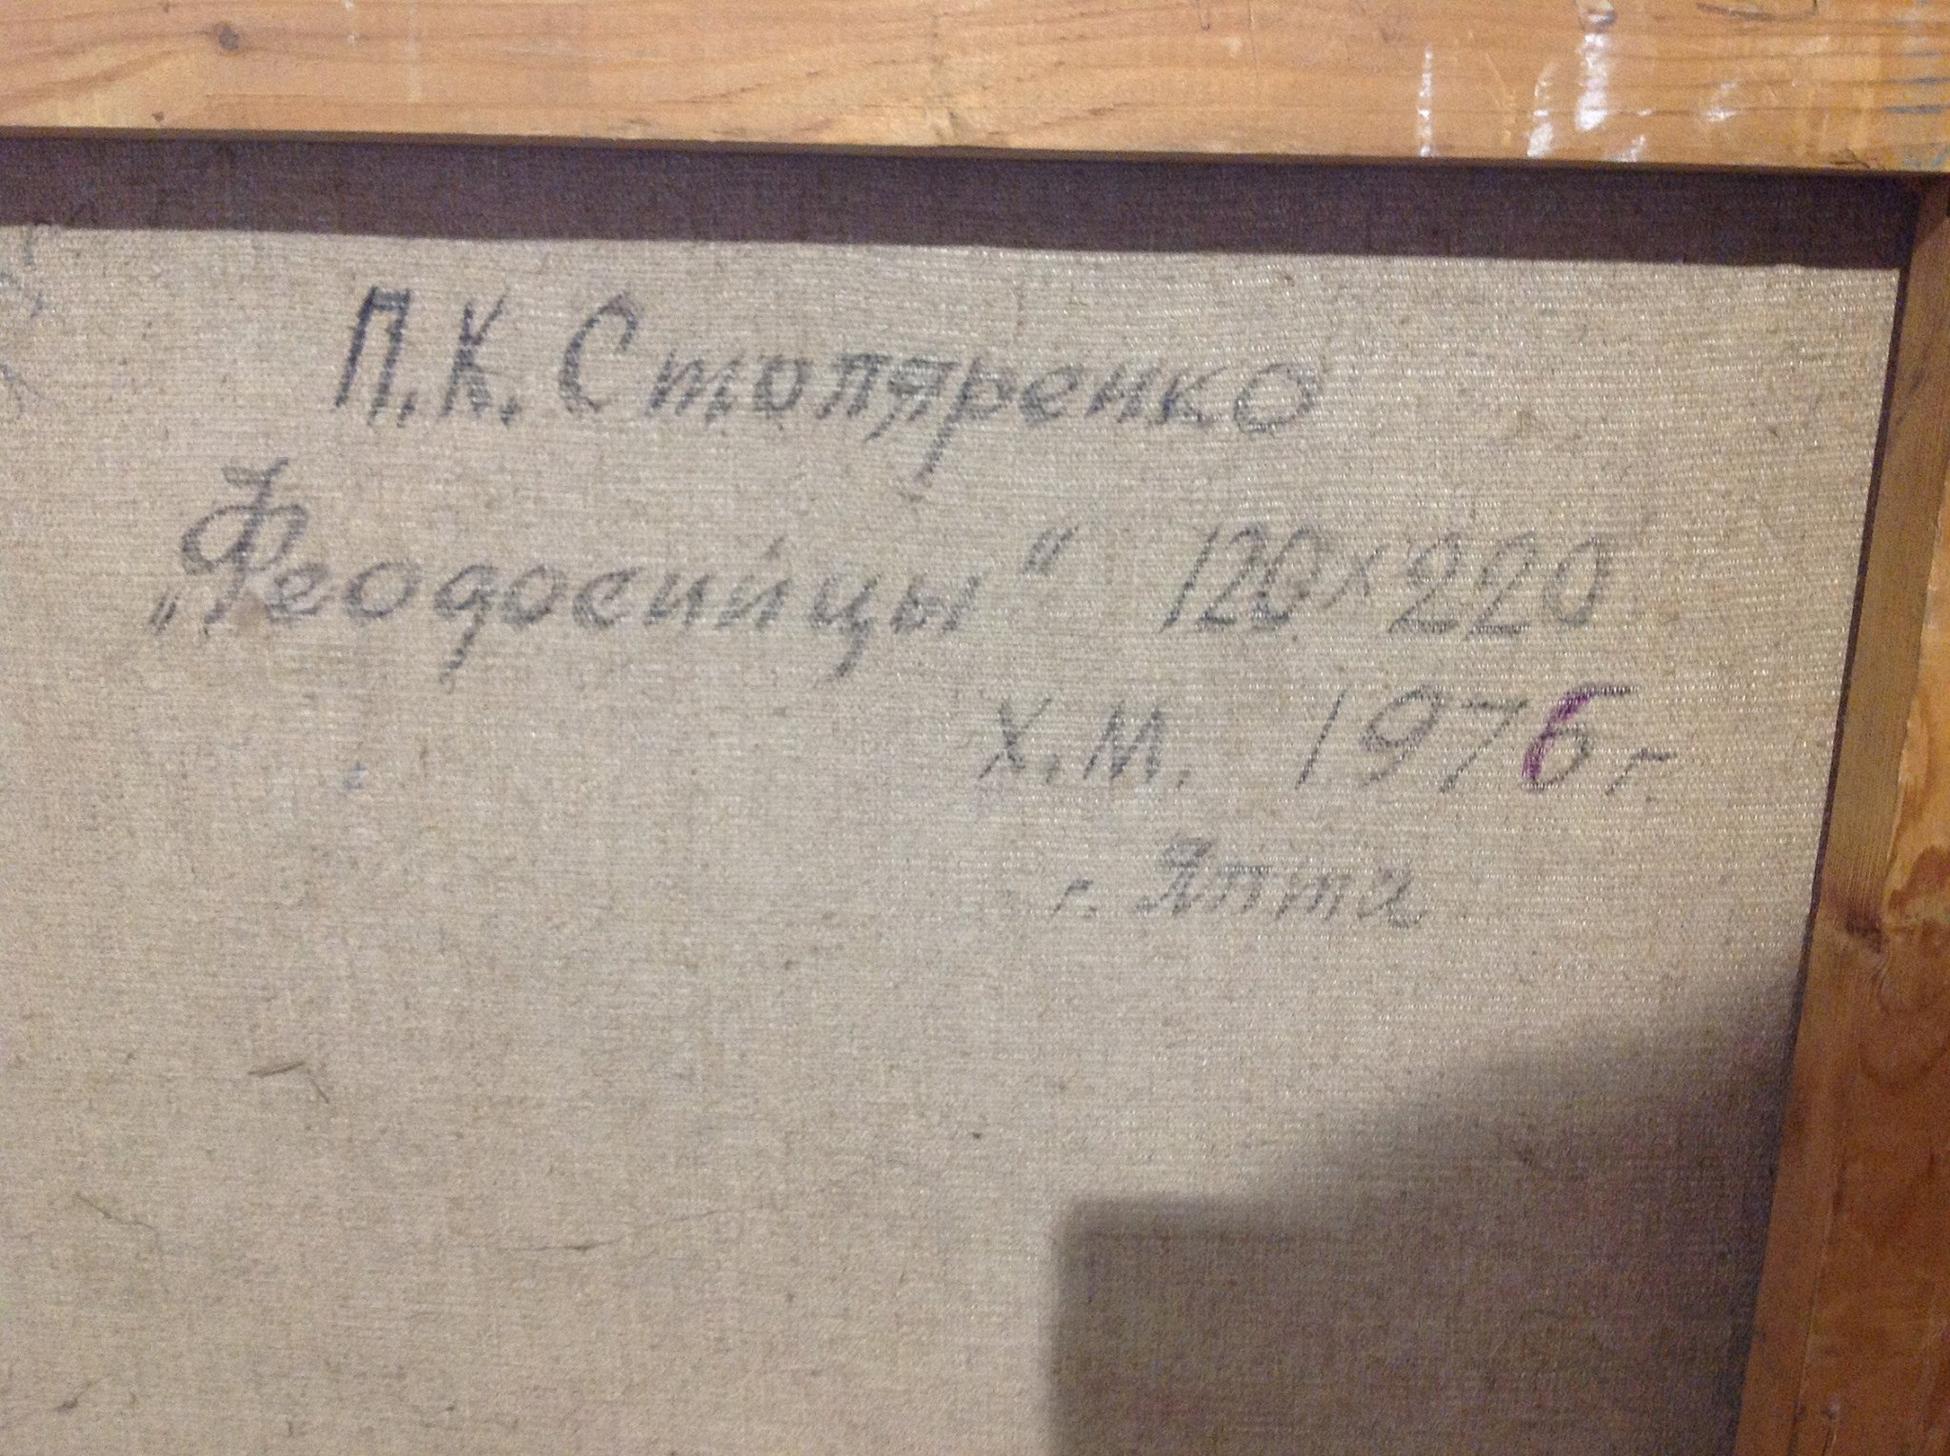 П.К. Столяренко
„Феодосийцы“ 120×220
Х.М. 1976 г.
г. Ялта